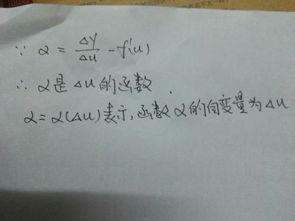 ∵ α = ΔY/Δu - f'(u)
∴ α是Δu的函数.
α=α(Δu)表示,函数α的自变量为Δu